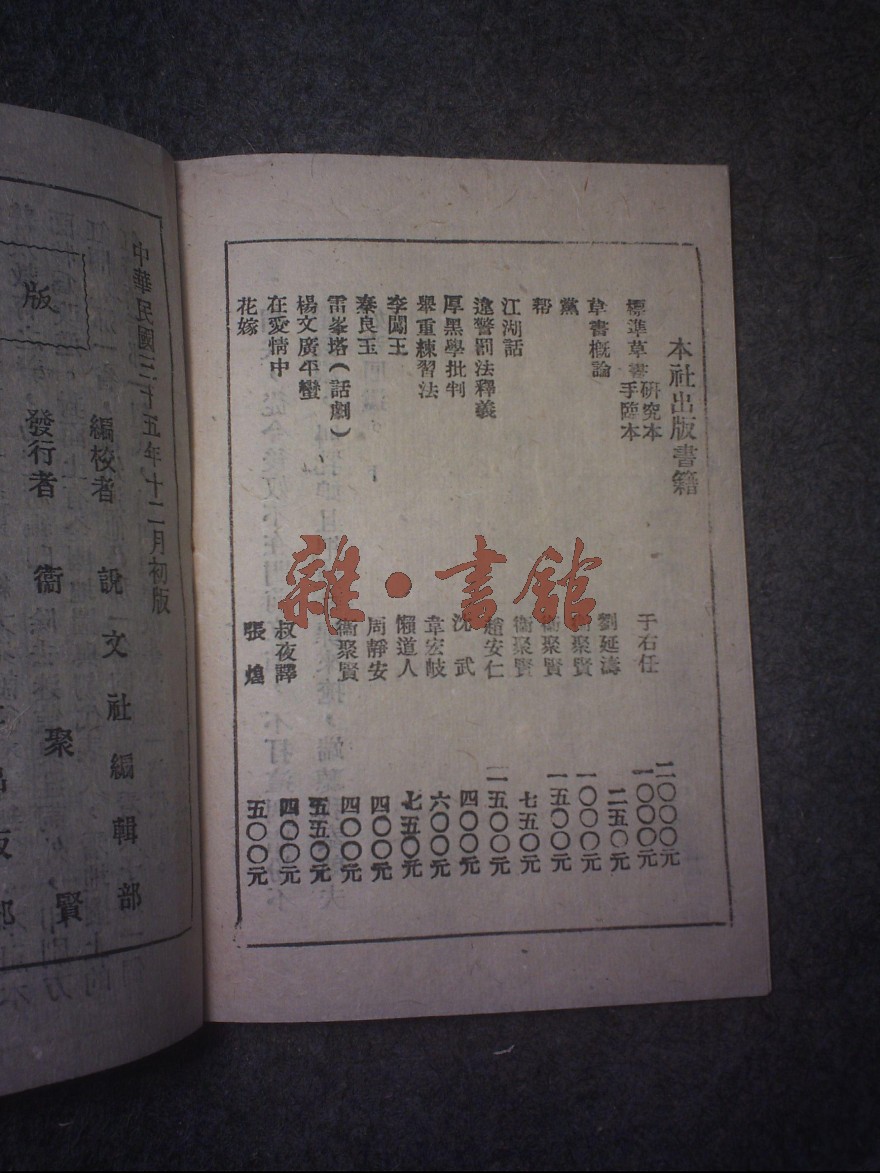 本社出版書籍
標準草書 研究本 手臨本 于右任 二〇〇〇元 一〇〇〇元
草書概論 劉延濤 二五〇元
黨 聚賢 一〇〇〇元
幇 衞聚賢 一五〇〇元
江湖話 衞聚賢 七五〇元
違警罰法釋義 趙安仁 一五〇〇元
厚黑學批判 沈武 四〇〇元
舉重練習法 韋宏岐 六〇〇元
李闖王 懶道人 七五〇元
秦良玉 周靜安 四〇〇元
雷峯塔（話劇） 衞聚賢 四〇〇元
楊文廣平蠻 五五〇元
在愛情中 叔夜譯 四〇〇元
花嫁 張煌 五〇〇元
雜·書館
中華民國三十五年十二月初版
編校者 說文社編輯部
發行者 衞聚賢
版
出版部